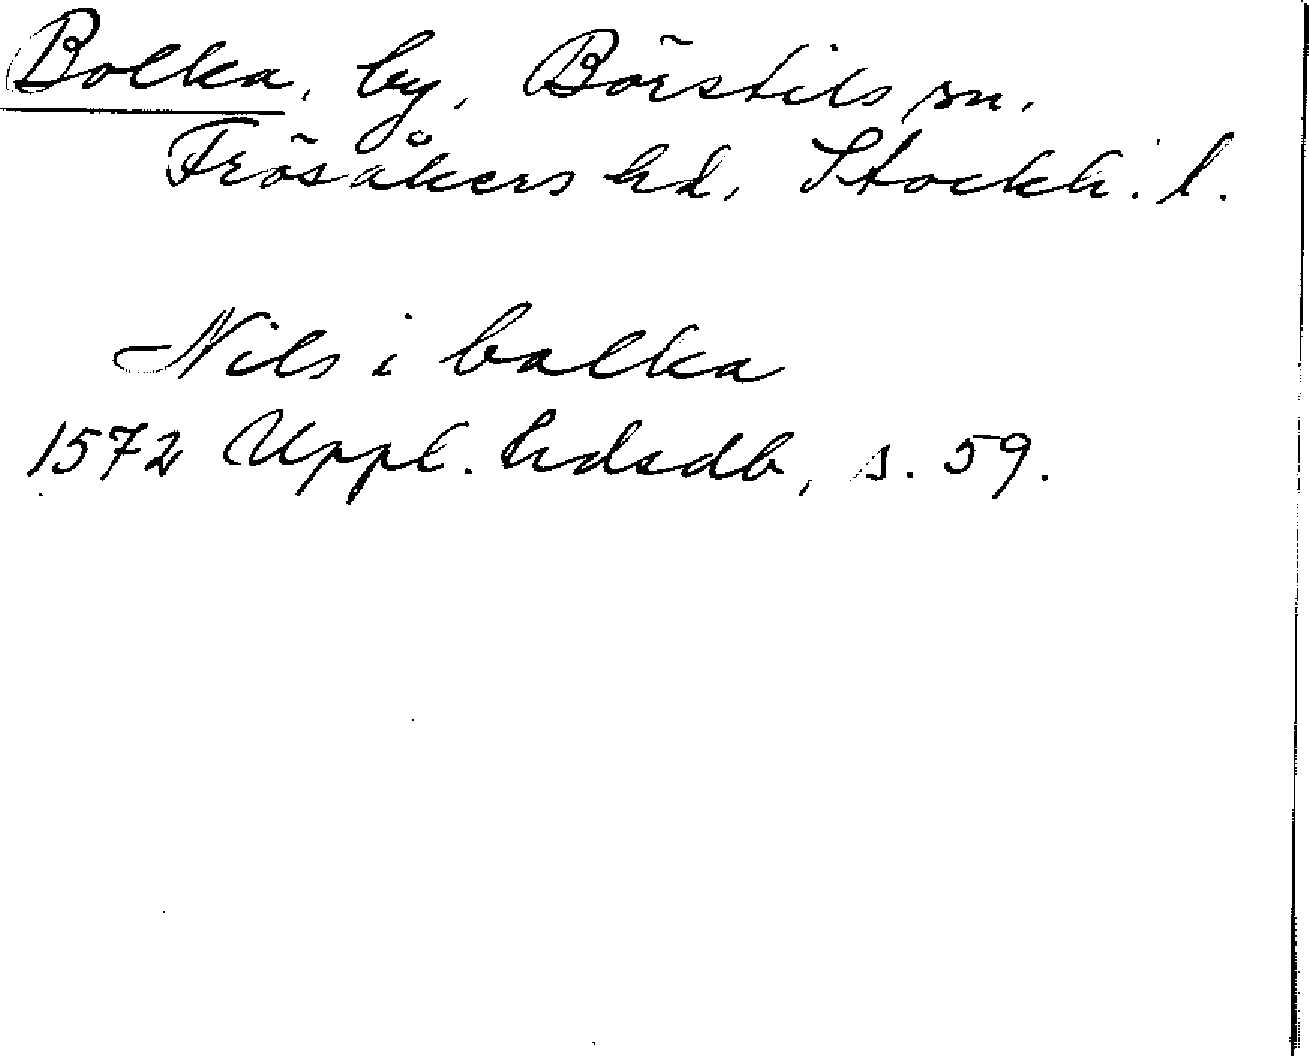 Bolka, by, Börstils sn.
Frösåkers hd, Stockh. l.
Nils i balka
1572 Uppl. hdsdb, s. 59.